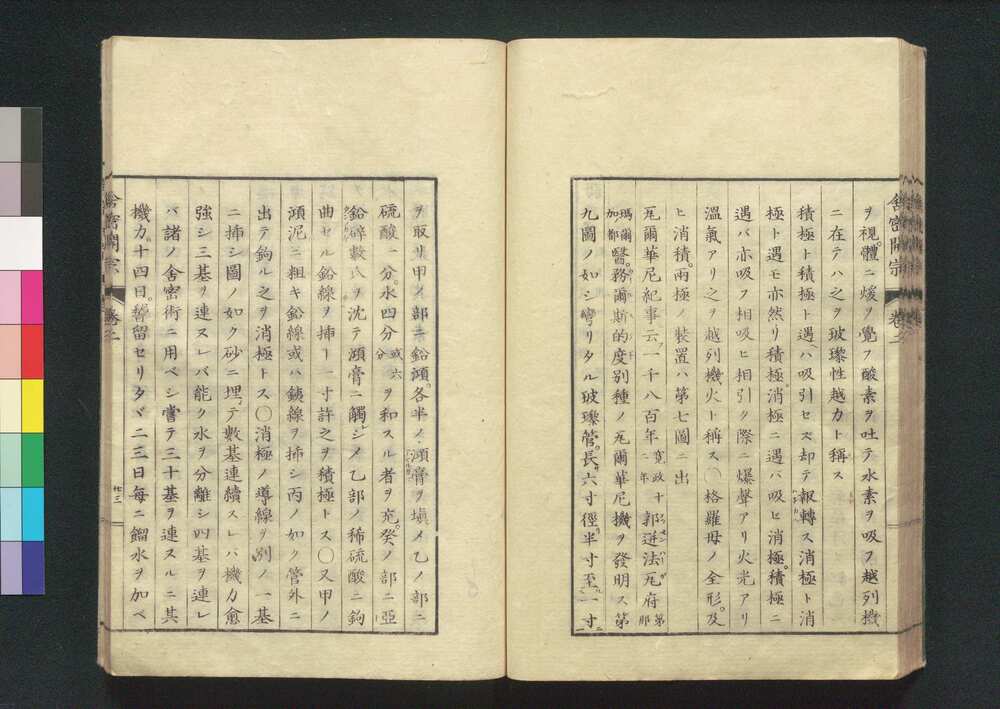 ヲ視體ニ煖ヲ覺フ酸素ヲ吐テ水素ヲ吸フ越列機
ニ在テハ之ヲ玻瓈性越カト稱ス
積極ト積極ト遇ハ吸引セズ却テ報轉ス消極ト消
極ト遇モ亦然リ積極消極ニ遇バ吸ヒ消極積極ニ
遇バ亦吸フ相吸ヒ相引ク際ニ爆聲アリ火光アリ
溫氣アリ之ヲ越列機火ト稱ス○格羅母ノ全形及
ヒ消積兩極ノ裝置ハ第七圖ニ出
瓦爾華尼紀事云一千八百年寛政十二年
瑪爾加都醫務爾斯的度別種ノ瓦爾華尼機ヲ發明ス第
九圖ノ如シ彎リタル玻瓈管長六寸徑半寸至一寸
舎密開宗 巻二
ヲ取リ甲ノ部ニ鉛澒各半ノ澒膏ヲ塡メ乙ノ部ニ
硫酸一分水四分或六分ヲ和スル者ヲ充癸ノ部ニ亞
鉛碎數八ヲ沈テ澒膏ニ觸シメ乙部ノ稀硫酸ニ鉤
曲セル鉛線ヲ挿一寸許之ヲ積極トス○又甲ノ
澒泥ニ粗キ鉛線或ハ銕線ヲ挿シ丙ノ如ク管外ニ
出テ鉤ル之ヲ消極トス○消極ノ導線ヲ別ノ一基
ニ挿シ圖ノ如ク砂ニ埋テ數基連續スレバ機力愈
強シ三基ヲ連スレバ能ク水ヲ分離シ四基ヲ連レ
バ諸ノ舎密術ニ用ベシ嘗テ三十基ヲ連スルニ其
機力十四日稽留セリタヾ二三日毎ニ餾水ヲ加ベ
舎密開宗 巻二 廿三